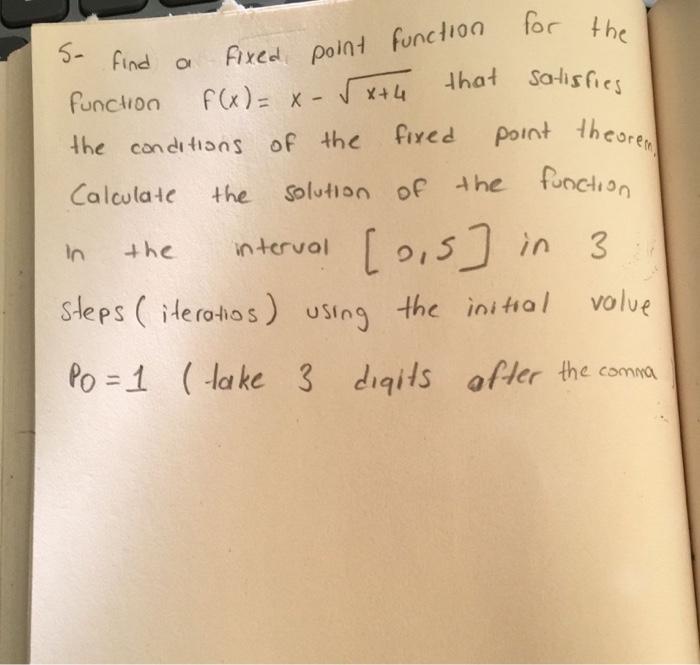 5- find a fixed point function for the
function f(x) = x - √x+4 that satisfies
the conditions of the fixed point theorem.
Calculate the solution of the function
in the interval [0,5] in 3
steps (iteratios) using the initial value
P0 = 1 (take 3 digits after the comma